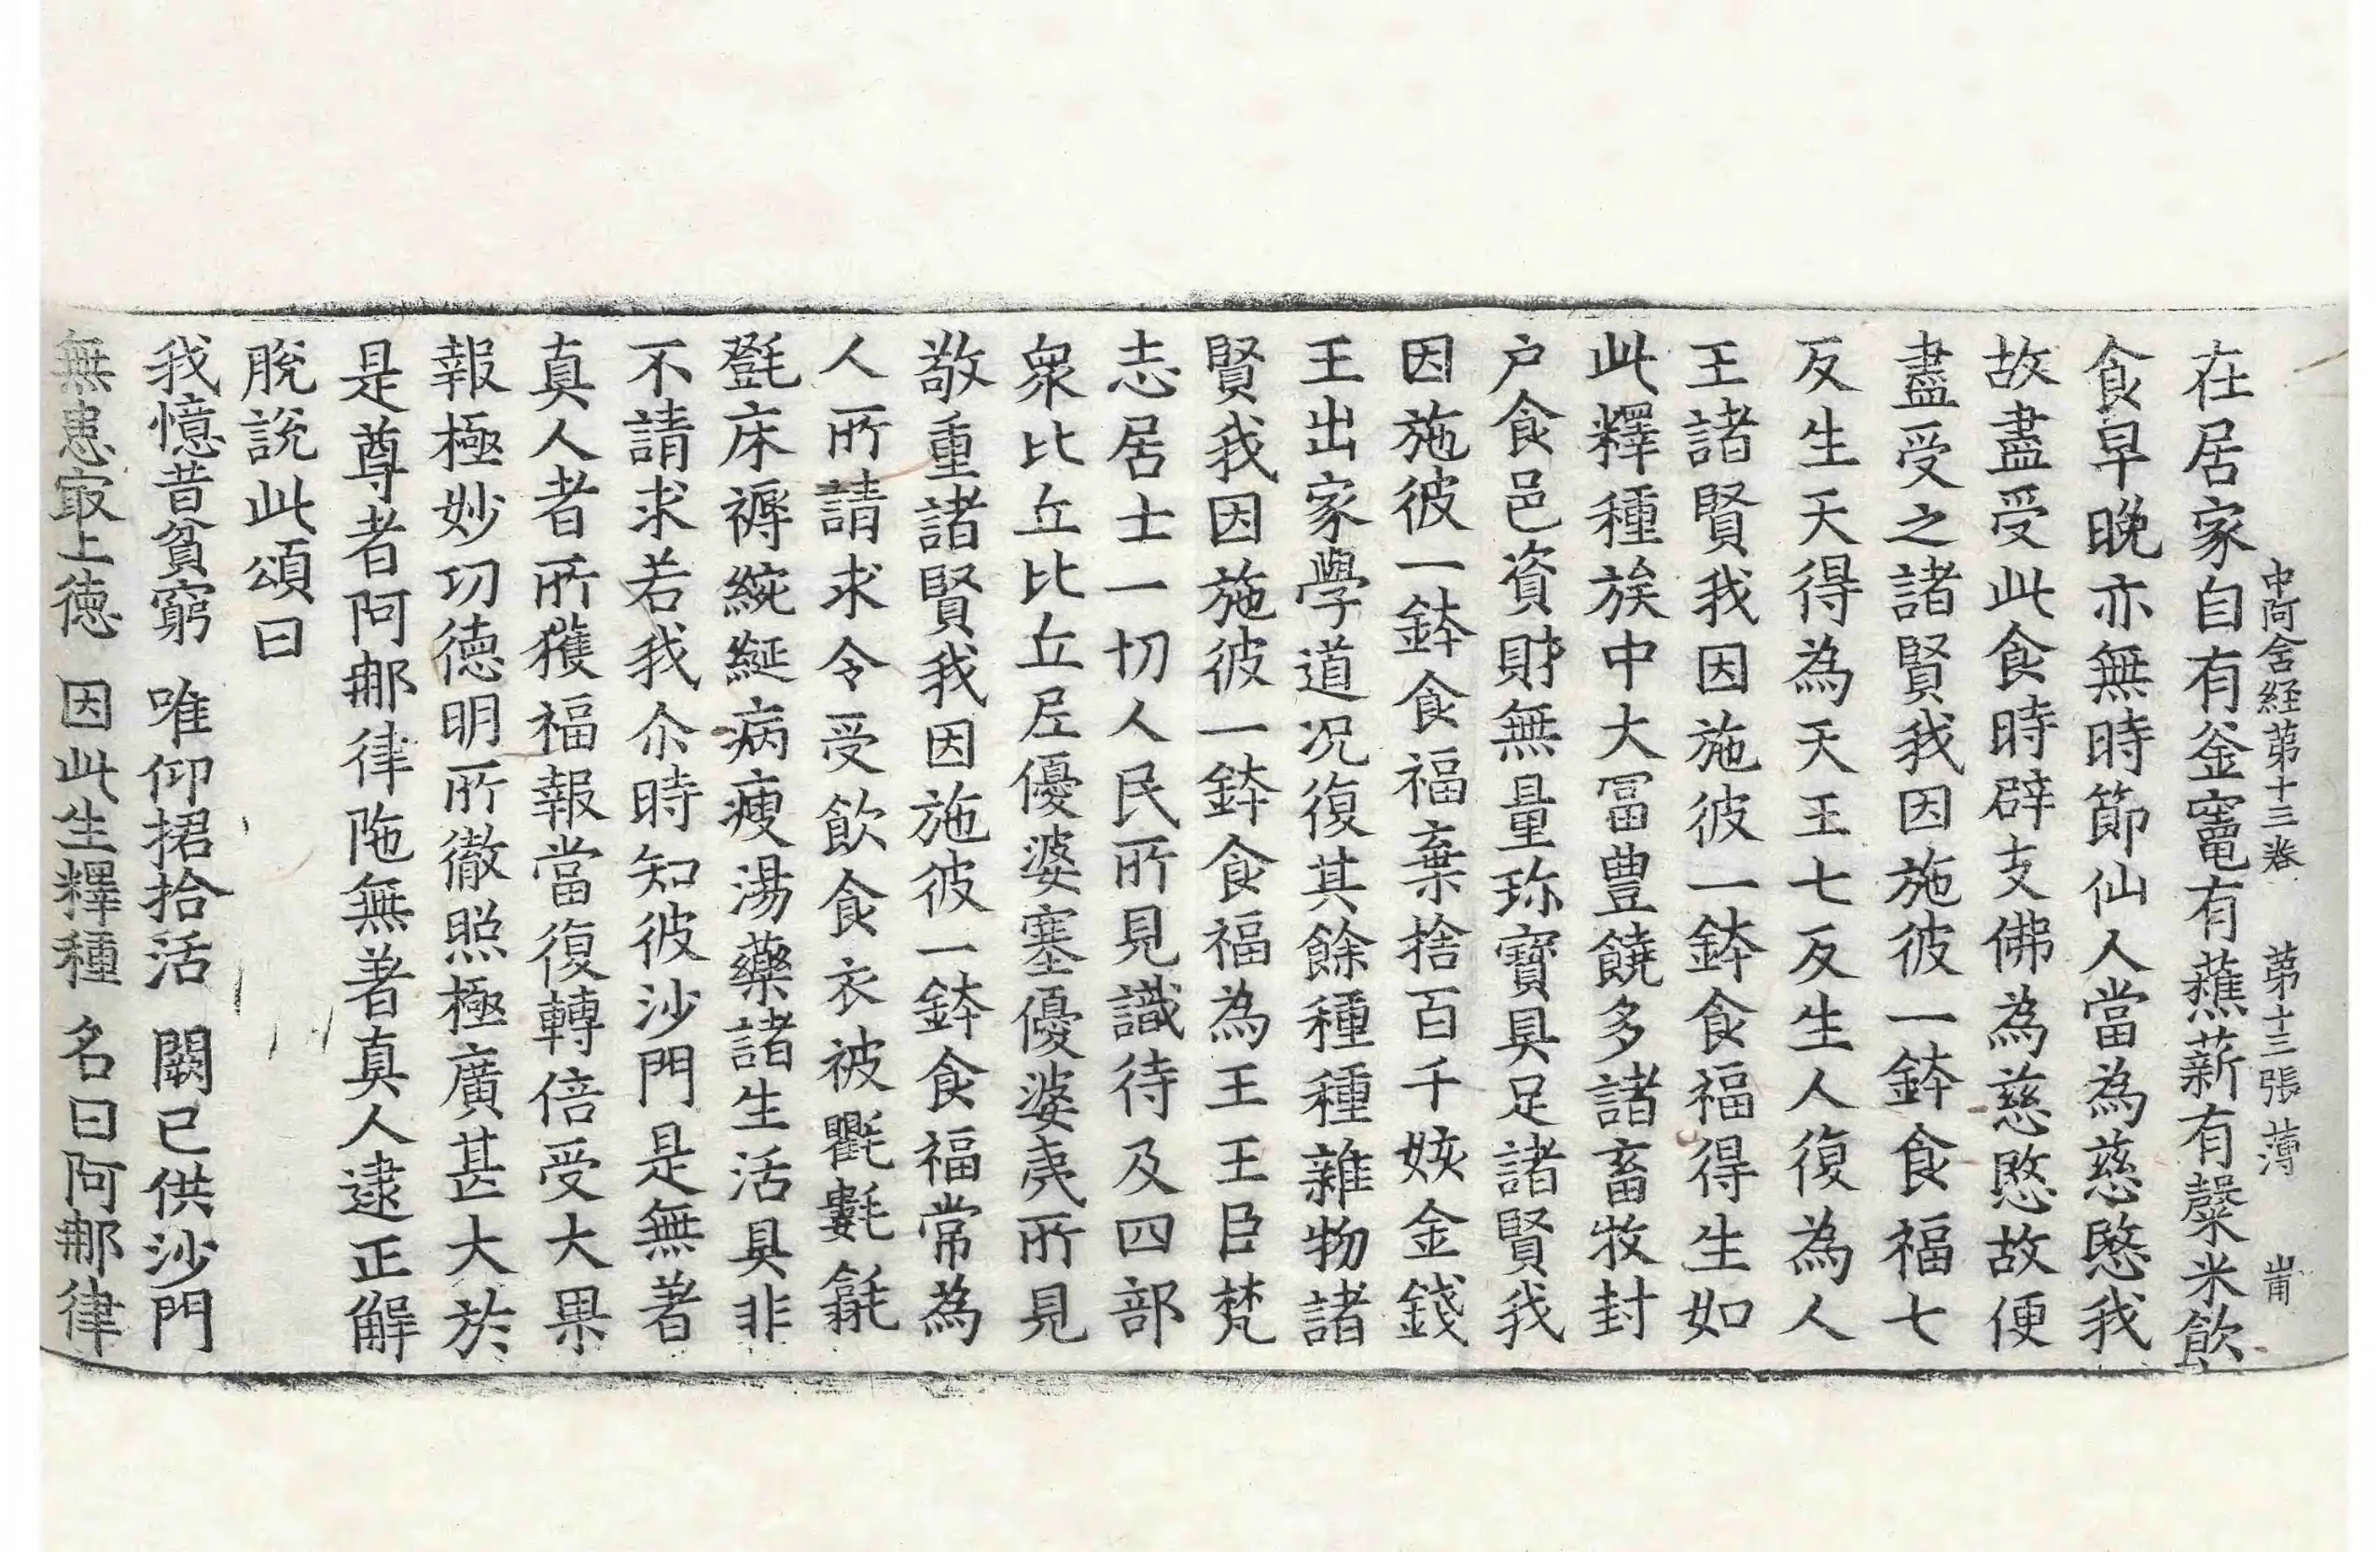 中阿含經第十三卷 第十三張 薄
在居家自有釜竈有蕉薪有䊩米飲
食早晚亦無時節仙人當為慈愍我
故盡受此食時辟支佛為慈愍故便
盡受之諸賢我因施彼一鉢食福七
反生天得為天王七反生人復為人
王諸賢我因施彼一鉢食福得生如
此釋種族中大冨豊饒多諸畜牧封
户食邑資財無量珎寶具足諸賢我
因施彼一鉢食福棄捨百千姟金錢
王出家學道况復其餘種種雜物諸
賢我因施彼一鉢食福為王王臣梵
志居士一切人民所見識待及四部
衆比丘比丘尼優婆塞優婆夷所見
敬重諸賢我因施彼一鉢食福常為
人所請求令受飲食衣被氍𣯜㲪
㲪床褥綩綖病瘦湯藥諸生活具非
不請求若我尒時知彼沙門是無著
真人者所獲福報當復轉倍受大果
報極妙功德明所徹照極廣甚大於
是尊者阿那律陁無著真人逮正解
脫說此頌曰
我憶昔貧窮 唯仰捃拾活 闕已供沙門
無患寂上徳 因此生釋種 名曰阿那律